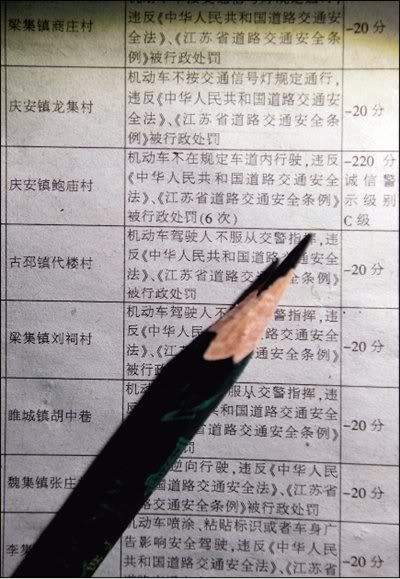 梁集镇商庄村
违反《中华人民共和国道路交通安
全法》、《江苏省道路交通安全条
例》被行政处罚
-20分
庆安镇龙集村
机动车不按交通信号灯规定通行,
违反《中华人民共和国道路交通安
全法》、《江苏省道路交通安全条
例》被行政处罚
-20分
庆安镇鲍庙村
机动车不在规定车道内行驶,违反
《中华人民共和国道路交通安全
法》、《江苏省道路交通安全条例》
被行政处罚(6次)
-220分
诚信警
示级别
C级
古邳镇代楼村
机动车驾驶人不服从交警指挥,违
反《中华人民共和国道路交通安
全法》、《江苏省道路交通安全条例》
被行政处罚
-20分
梁集镇刘祠村
机动车驾驶人不服从交警指挥,违
反《中华人民共和国道路交通安
全法》、《江苏省道路交通安全条例》
被行政
-20分
睢城镇胡中巷
机动 服从交警指挥,违
共和国道路交通安全
江苏省道路交通安全条例》
-20分
魏集镇张庄
逆向行驶,违反《中华人民
国道路交通安全法》、《江苏省
路交通安全条例》被行政处罚
-20分
李集
机动车喷涂、粘贴标识或者车身广
告影响安全驾驶,违反《中华人民
共和国道路交通安全法》、《江苏省
-20分